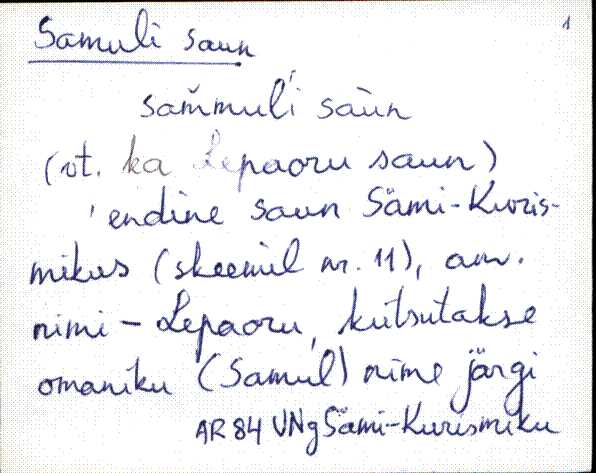 Samuli saun 1
sam̆muĺi sàun
(vt. ka Lepaoru saun)
'endine saun Sämi-Kuris-
mikus (skeemil nr. 11), am.
nimi - Lepaoru, kutsutakse
omaniku (Samul) nime järgi
AR 84 VNg Sämi-Kurismiku